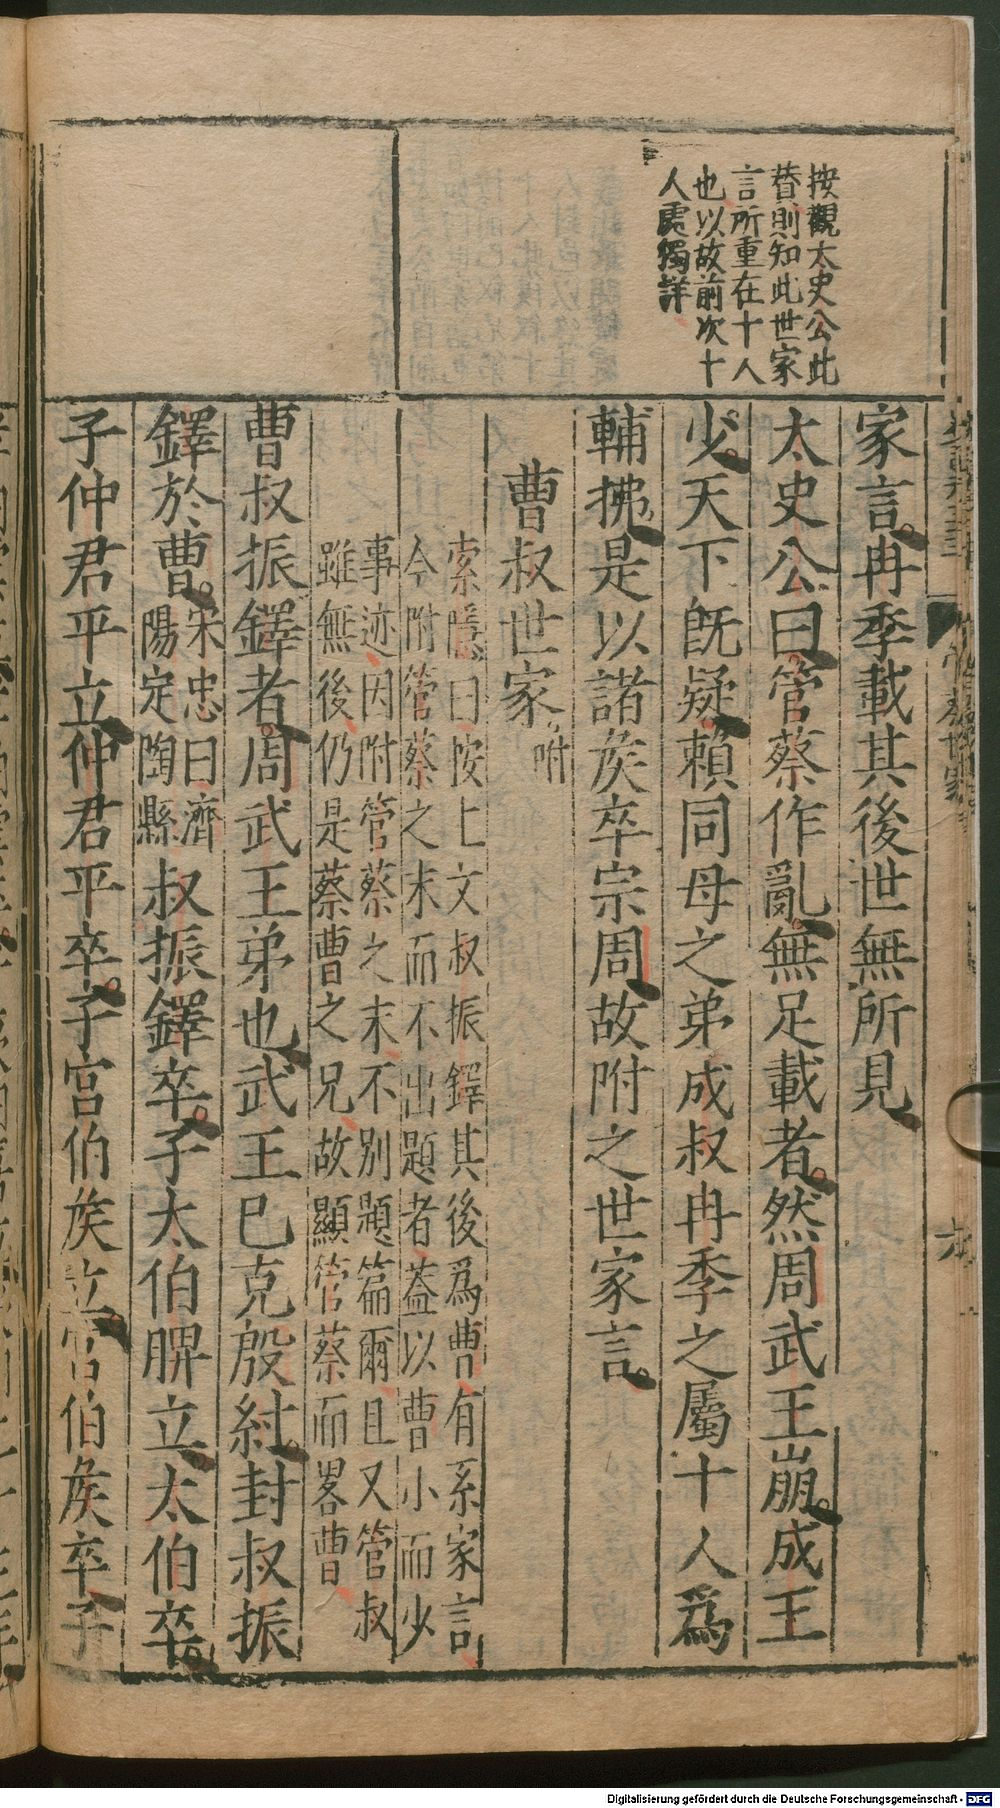 按觀太史公此
替則知此世家
言所重在十人
也以故前次十
人處獨詳
家言冉季載其後世無所見
太史公曰管蔡作亂無足載者然周武王崩成王
少天下旣疑賴同母之弟成叔冉季之屬十人爲
輔拂是以諸矦卒宗周故附之世家言
曹叔世家附
索隱曰按上文叔振鐸其後爲曹有系家言
今附管蔡之末而不出題者葢以曹小而少
事迹因附管蔡之末不別題篇爾且又管叔
雖無後仍是蔡曹之兄故顯管蔡而畧曹
曹叔振鐸者周武王弟也武王巳克殷紂封叔振
鐸於曹宋忠曰濟陽定陶縣叔振鐸卒子太伯脾立太伯卒
子仲君平立仲君平卒子宮伯矦立宮伯矦卒子
管蔡世家
Digitalisierung gefördert durch die Deutsche Forschungsgemeinschaft - DFG